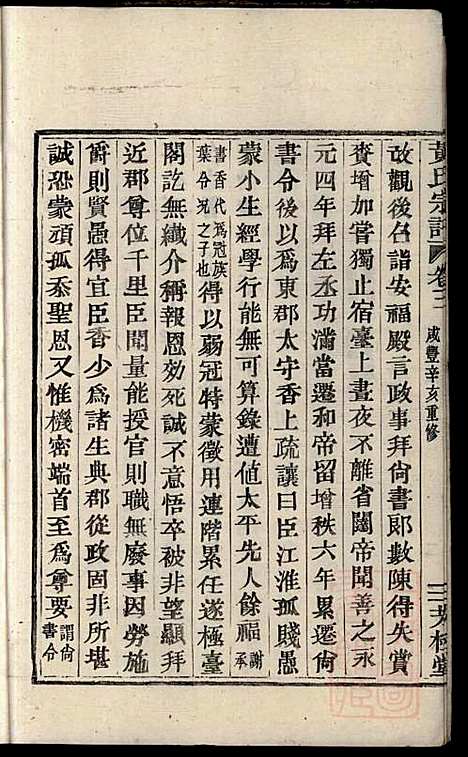 黃氏宗譜 卷二 咸豐辛亥重修
改觀後召詣安福殿言政事拜尚書郎數陳得失賞
賚增加嘗獨止宿臺上晝夜不離省闥帝聞善之永
元四年拜左丞功滿當遷和帝留增秩六年累遷尚
書令後以為東郡太守香上疏讓曰臣江淮孤賤愚
蒙小生經學行能無可算錄遭值太平先人餘福謝承
書香代為冠族葉令况之子也得以弱冠特蒙徵用連階累任遂極臺
閣訖無纖介稱報恩効死誠不意悟卒被非望顯拜
近郡尊位千里臣聞量能授官則職無廢事因勞施
爵則賢愚得宜臣香少為諸生典郡從政固非所堪
誠恐蒙頑孤忝聖恩又惟機密端首至為尊要謂尚書令